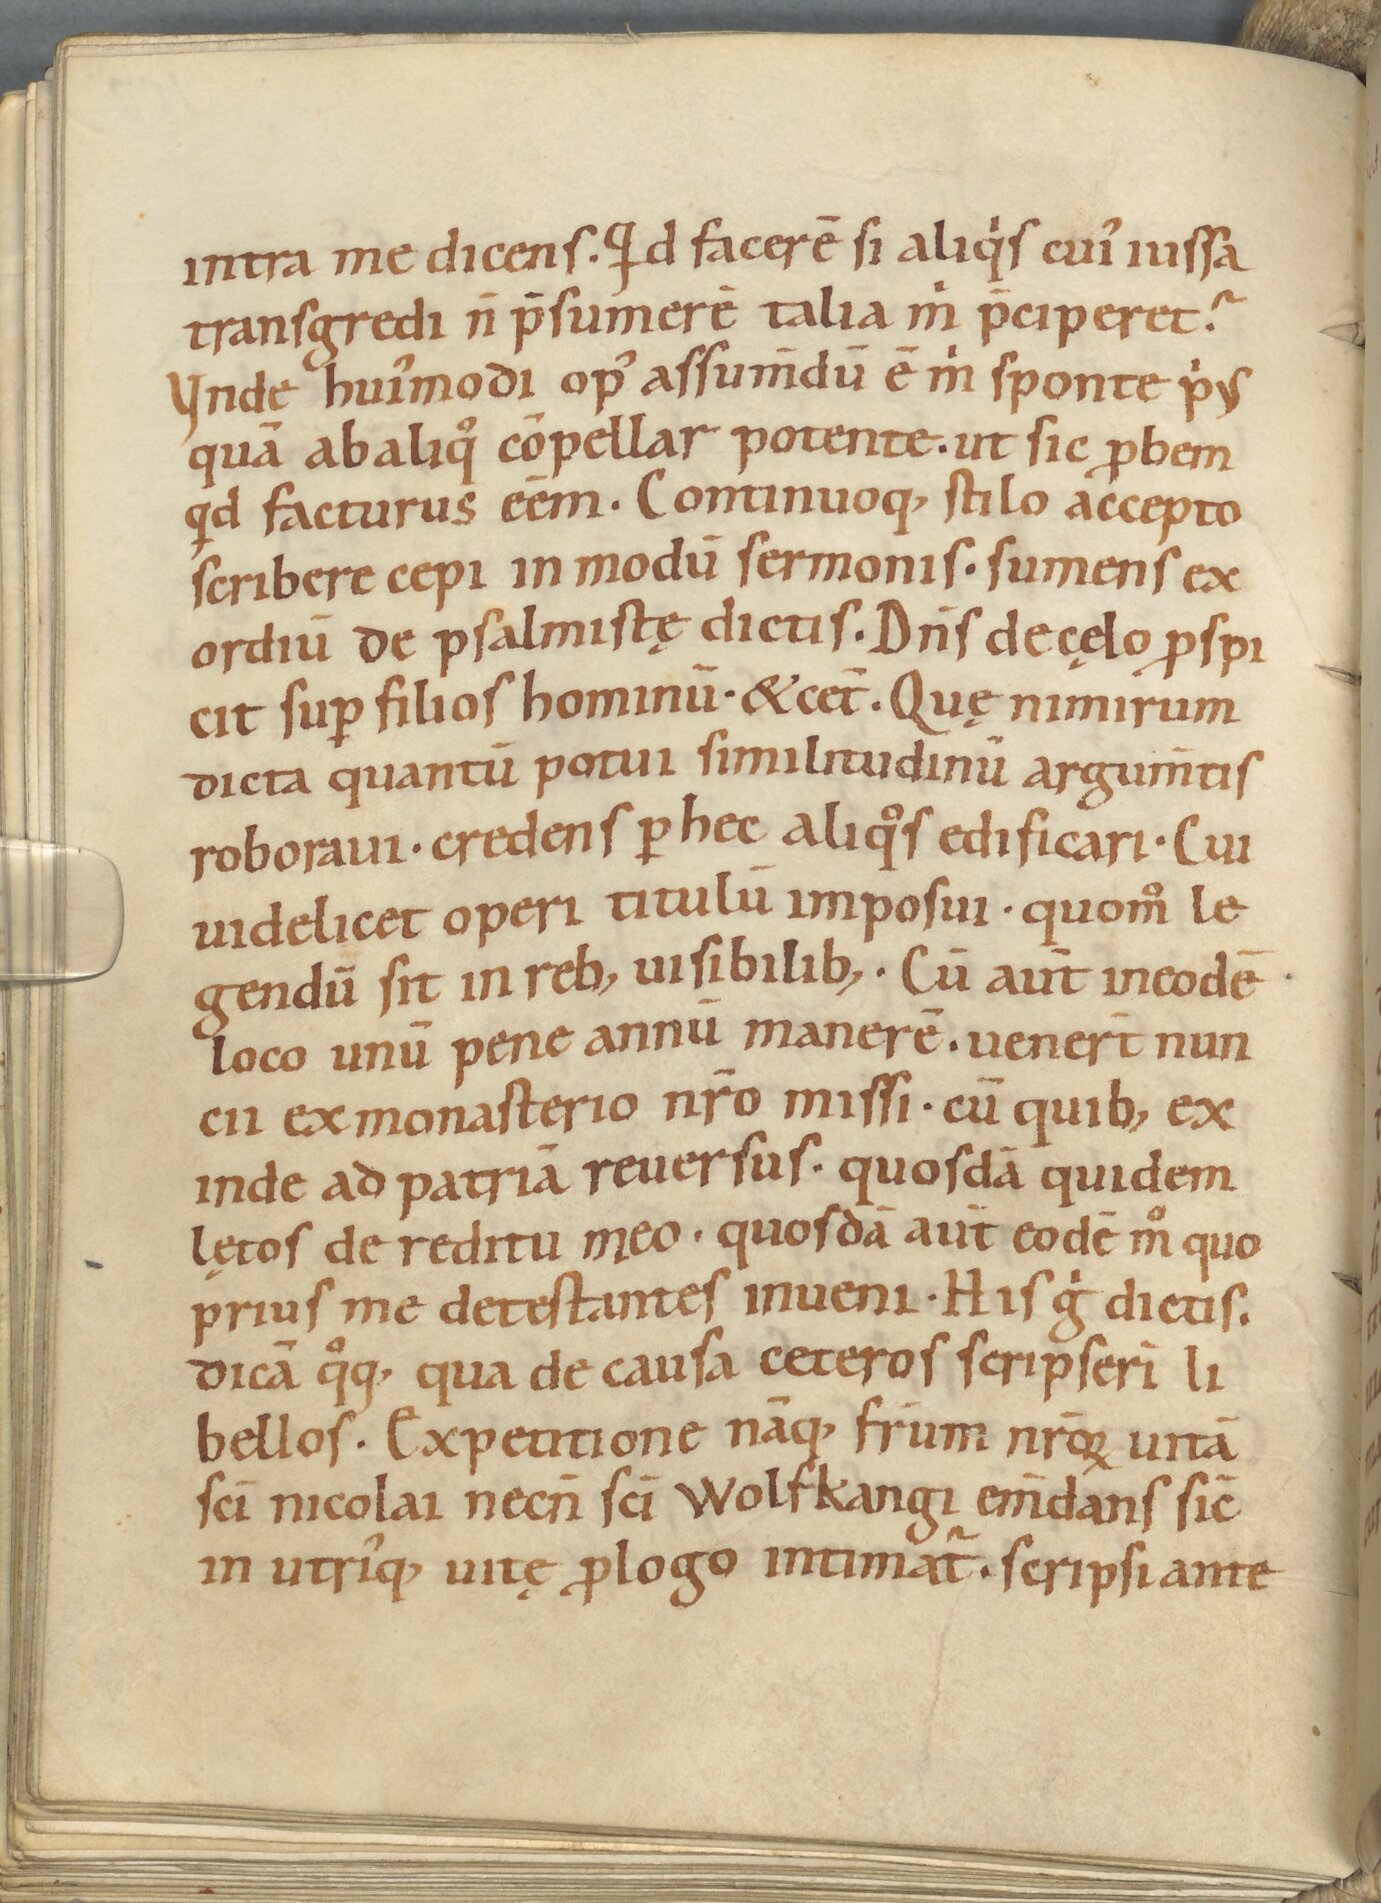 intra me dicens. Qd facerē si aliq̇s cuiꝰ iussa
transgredi n̄ p̄sumerē talia ṁ p̄ciperet?
Vnde huiꝰmodi opꝰ assum̄dū ē ṁ sponte pi̇ꝰ
quā ab aliqͦ cōpellar potente. ut sic ꝓbem
qd facturus eēm. Continuoq, stilo accepto
scribere cepi in modū sermonis. sumens ex
ordiū de psalmistę dictis. Dn̄s de cęlo ꝓspi
cit suꝑ filios hominū. & cet̄. Quę nimirum
dicta quantū potui similitudinū argum̄tis
roboraui. credens ꝑ hec aliqͦs edificari. Cui
uidelicet operi titulū imposui. quom̊ le
gendū sit in reb, uisibilib,. Cū aut̄ in eodē
loco unū pene annū manerē. uenert̄ nun
cii ex monasterio nr̄o missi. cū quib, ex
inde ad patriā reuersus. quosdā quidem
lętos de reditu meo. quosdā aut̄ eodē m̊ quo
prius me detestantes inueni. His ġ dictis.
dicā qͦq, qua de causa ceteros scripseri̅ li
bellos. Ex petitione nāq, fr̄um nr̄oꝝ uitā
sci̅ nicolai necn̄ sci̅ Wolfkangi em̄dans sic̄
in utriꝰq, uitę ꝓlogo intimat᷑. scripsi ante